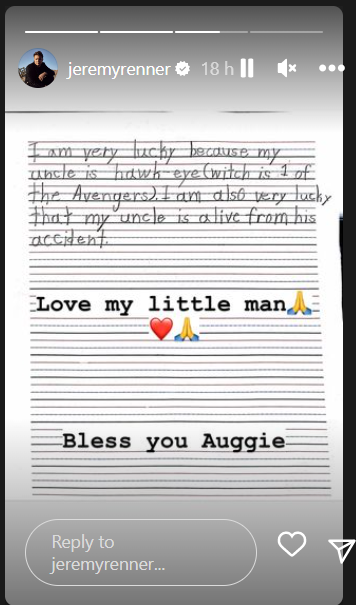 jeremyrenner 18 h
I am very lucky because my
uncle is hawk-eye (witch is 1 of
the Avengers). I am also very lucky
that my uncle is alive from his
accident.
Love my little man🙏
❤️🙏
Bless you Auggie
Reply to
jeremyrenner...